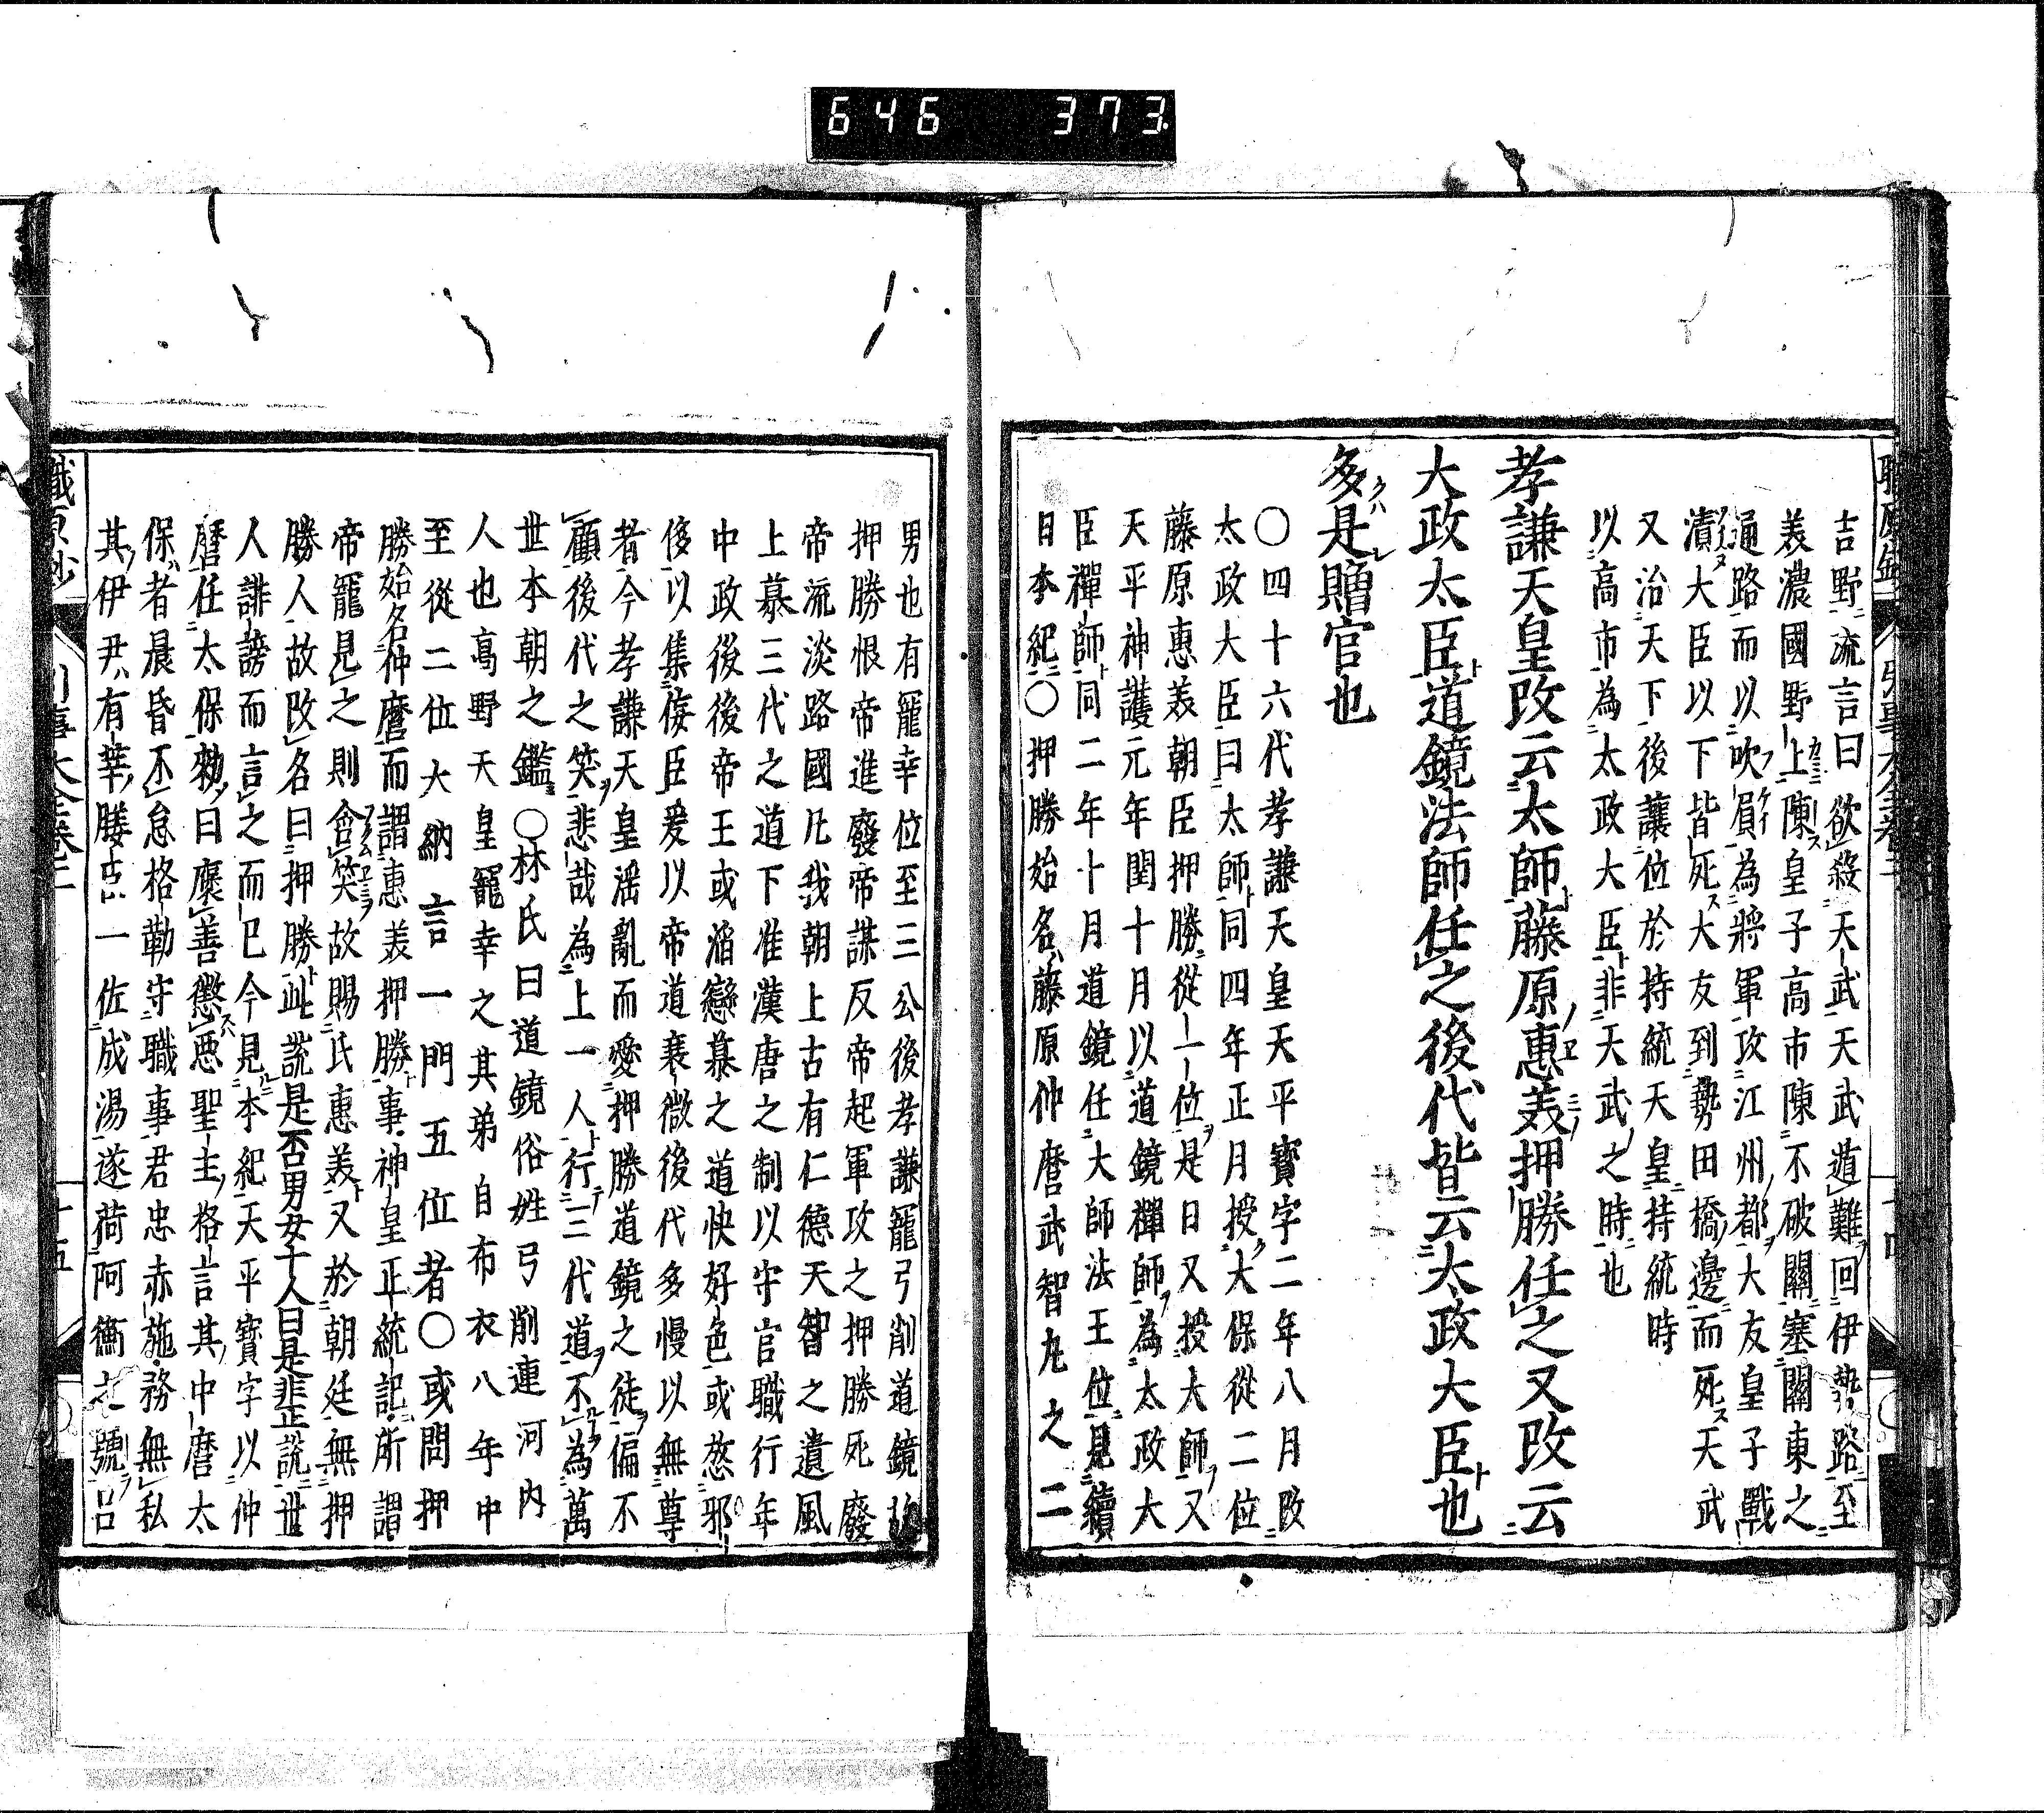 646 373
吉野流言曰欲殺天武天武遁難回伊勢路至
美濃國野上陳皇子高市陳不破關塞關東之
通路而以吹負為將軍攻江州都大友皇子戰
潰大臣以下皆死大友到勢田橋邊而死天武
又治天下後讓位於持統天皇持統時
以高市為太政大臣非天武之時也
孝謙天皇改云太師藤原惠美押勝任之又改云
大政太臣道鏡法師任之後代皆云太政大臣也
多是贈官也
○四十六代孝謙天皇天平寳字二年八月改
太政大臣曰太師同四年正月授大保從二位
藤原惠美朝臣押勝從一位是日又授大師又
天平神護元年閏十月以道鏡禪師為太政大
臣禪師同二年十月道鏡任大師法王位見續
日本紀○押勝始名藤原仲麿武智丸之二
男也有寵幸位至三公後孝謙寵弓削道鏡故
押勝恨帝進廢帝謀反帝起軍攻之押勝死廢
帝流淡路國凡我朝上古有仁德天智之遺風
上慕三代之道下准漢唐之制以守官職行年
中政後後帝王或滔戀慕之道快好色或惑邪
侈以集侫臣爰以帝道衰微後代多慢以無尊
者今孝謙天皇滛亂而愛押勝道鏡之徒偏不
顧後代之笑悲哉為上一人行三代道不為萬
世本朝之鑑○林氏曰道鏡俗姓弓削連河内
人也高野天皇寵幸之其弟自布衣八年中
至從二位大納言一門五位者○或問押
勝始名仲麿而謂惠美押勝事神皇正統記所謂
帝寵見之則含笑故賜氏惠美又於朝廷無押
勝人故改名曰押勝此説是否男女十人曰是非正説世
人誹謗而言之而已今見本紀天平寳字以仲
麿任太保勅曰褒善懲悪聖主格言其中麿太
保者晨昏不怠格勤守職事君忠赤施務無私
其伊尹有莘媵臣一佐成湯遂荷阿衡之號呂
職原鈔
引事大全卷二
十五